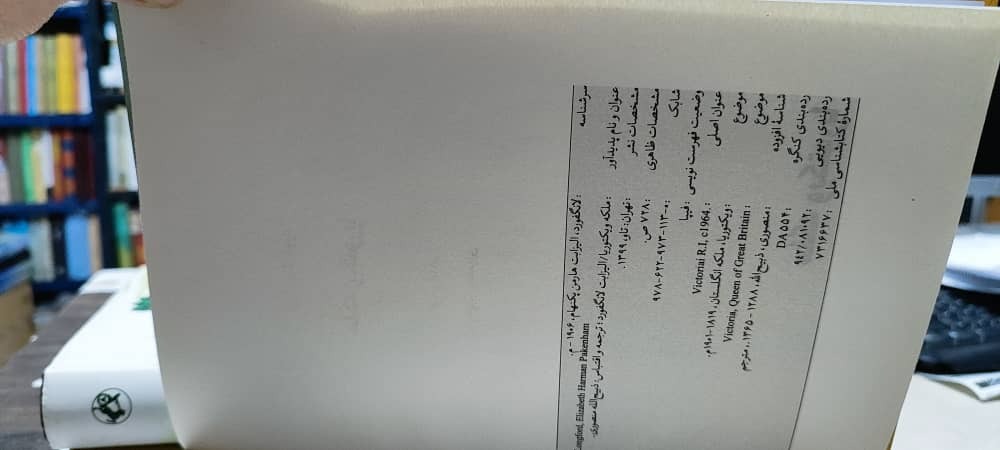 سرشناسه : لانگفورد، الیزابت هارمن پکنهام، ۱۹۰۶ - م.
Longford, Elizabeth Harman Pakenham
عنوان و نام پدیدآور : ملکه ویکتوریا/الیزابت لانگفورد؛ ترجمه و اقتباس: ذبیح‌الله منصوری.
مشخصات نشر : تهران: تاو، ۱۳۹۹.
مشخصات ظاهری : ۷۲۸ ص.
شابک : ۹۷۸-۶۲۲-۹۷۳-۱۱۳-۰
وضعیت فهرست نویسی : فیپا
عنوان اصلی : Victoriai R.I, c1964.
موضوع : ویکتوریا، ملکه انگلستان، ۱۸۱۹-۱۹۰۱م.
موضوع : Victoria, Queen of Great Britain
شناسه افزوده : منصوری، ذبیح‌الله، ۱۲۸۸ - ۱۳۶۵.، مترجم
رده‌بندی کنگره : DA۵۵۴
رده‌بندی دیویی : ۹۴۲/۰۸۱۰۹۲
شمارهٔ کتابشناسی ملی : ۷۳۱۶۶۳۷